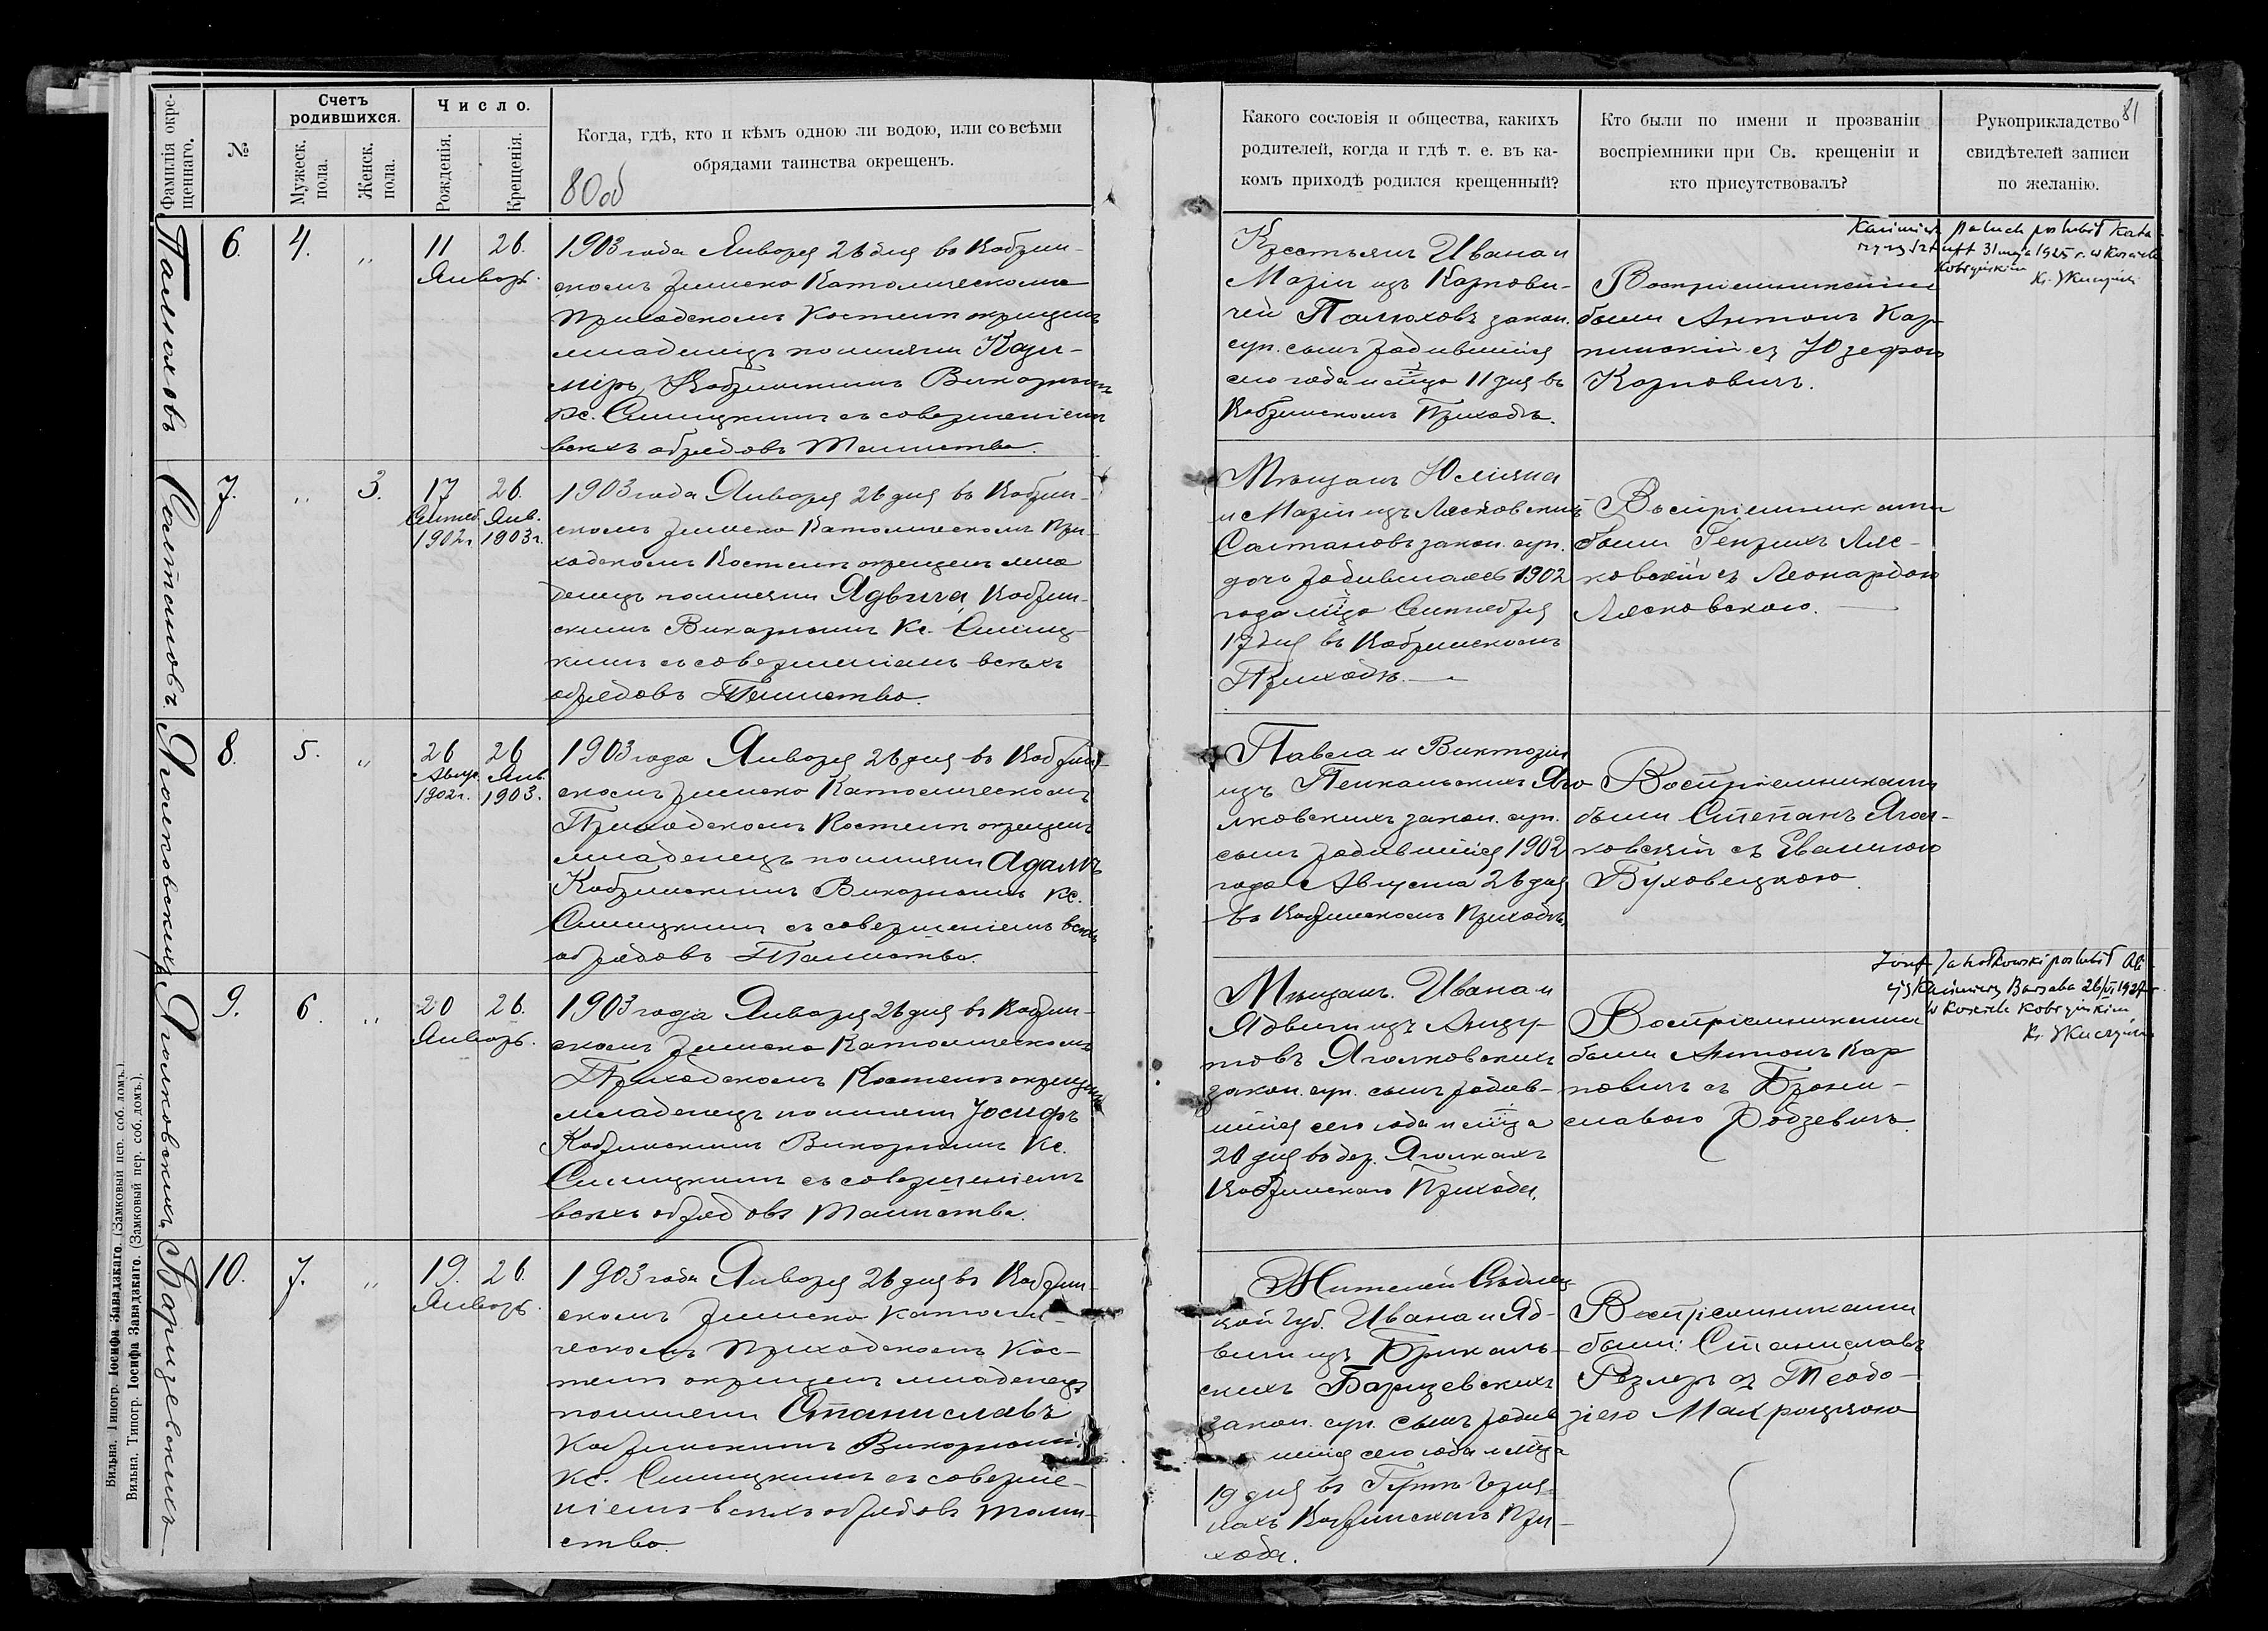 81
Фамилія окре-
щеннаго.
№
Счетъ
родившихся.
Мужеск.
пола.
Женск.
пола.
Число.
Рожденія.
Крещенія.
Когда, гдѣ, кто и кѣмъ одною ли водою, или со всѣми
обрядами таинства окрещенъ.
80об
Какого сословія и общества, какихъ
родителей, когда и гдѣ т. е. въ ка-
комъ приходѣ родился крещенный?
Кто были по имени и прозваніи
воспріемники при Св. крещеніи и
кто присутствовалъ?
Рукоприкладство
свидѣтелей записи
по желанію.
Палюховъ
6.
4.
"
11 26.
Январь.
1903 года Января 26 дня въ Кобрин-
скомъ Римско Католическомъ
Приходскомъ Костелѣ окрещенъ
младенецъ по имени Кази-
міръ, Кобринскимъ Викарнымъ
Кс. Силицкимъ съ совершеніемъ
всѣхъ обрядовъ Таинства.
Крестьянъ Ивана и
Маріи изъ Карпови-
чей Палюховъ закон.
суп. сынъ родившійся
сего года и мѣсца 11 дня въ
Кобринскомъ Приходѣ.
Воспріемниками
были Антонъ Кар-
пинскій съ Юзефою
Карповичъ.
Kazimierz Paluch poślubił Kata-
rzynę 31 maja 1925 r. w Kościele
Kobryńskim
Солтановъ
7.
"
3.
17 26.
Сентяб. Янв.
1902г. 1903г.
1903 года Января 26 дня въ Кобрин-
скомъ Римско Католическомъ При-
ходскомъ Костелѣ окрещенъ мла-
денецъ по имени Ядвига, Кобрин-
скимъ Викарнымъ Кс. Силиц-
кимъ съ совершеніемъ всѣхъ
обрядовъ Таинства.
Мѣщанъ Юліяна
и Маріи изъ Лясковскихъ
Солтановъ закон. суп.
дочь родившаяся 1902
года мѣсца Сентября
17 дня въ Кобринскомъ
Приходѣ.
Воспріемниками
были Генрихъ Ляс-
ковскій съ Леонардою
Лясковскою.
Яголковскихъ
8.
5.
"
26 26
Авгус. Янв.
1902г. 1903.
1903 года Января 26 дня въ Кобрин-
скомъ Римско Католическомъ
Приходскомъ Костелѣ окрещенъ
младенецъ по имени Адамъ
Кобринскимъ Викарнымъ Кс.
Силицкимъ съ совершеніемъ всѣхъ
обрядовъ Таинства.
Павла и Викторіи
изъ Пекальскихъ Яго-
лковскихъ закон. суп.
сынъ родившійся 1902
года Августа 26 дня
въ Кобринскомъ Приходѣ.
Воспріемниками
были Степанъ Ягол-
ковскій съ Евалиною
Буховецкою.
Яголковскихъ
9.
6.
"
20 26.
Январь.
1903 года Января 26 дня въ Кобрин-
скомъ Римско Католическомъ
Приходскомъ Костелѣ окрещенъ
младенецъ по имени Іосифъ
Кобринскимъ Викарнымъ Кс.
Силицкимъ съ совершеніемъ
всѣхъ обрядовъ Таинства.
Мѣщанъ Ивана и
Ядвиги изъ
Яголковскихъ
закон. суп. сынъ родив-
шійся сего года и мѣсца
20 дня въ дер. Яголкахъ
Кобринскаго Прихода.
Воспріемниками
были Антонъ Кар-
повичъ съ Брони-
славою Родзевичъ.
Józef Jahołkowski poślubił
w Kościele Kobryńskim
Барщевскихъ
10.
7.
"
19. 26.
Январь.
1903 года Января 26 дня въ Кобрин-
скомъ Римско Католи-
ческомъ Приходскомъ Кос-
телѣ окрещенъ младенецъ
по имени Станиславъ
Кобринскимъ Викарнымъ
Кс. Силицкимъ съ соверше-
ніемъ всѣхъ обрядовъ Таин-
ства.
Жителей Сѣдлец-
кой губ. Ивана и Яд-
виги изъ
Барщевскихъ
закон. суп. сынъ родив-
шійся сего года и мѣсца
19 дня въ
Кобринскаго При-
хода.
Воспріемниками
были: Станиславъ
Рэзлеръ съ Теодо-
зіею Махроцкою
Вильна. Типогр. Іосифа Завадзкаго. (Замковый пер. соб. домъ.)
Вильна. Типогр. Іосифа Завадзкаго. (Замковый пер. соб. домъ.)